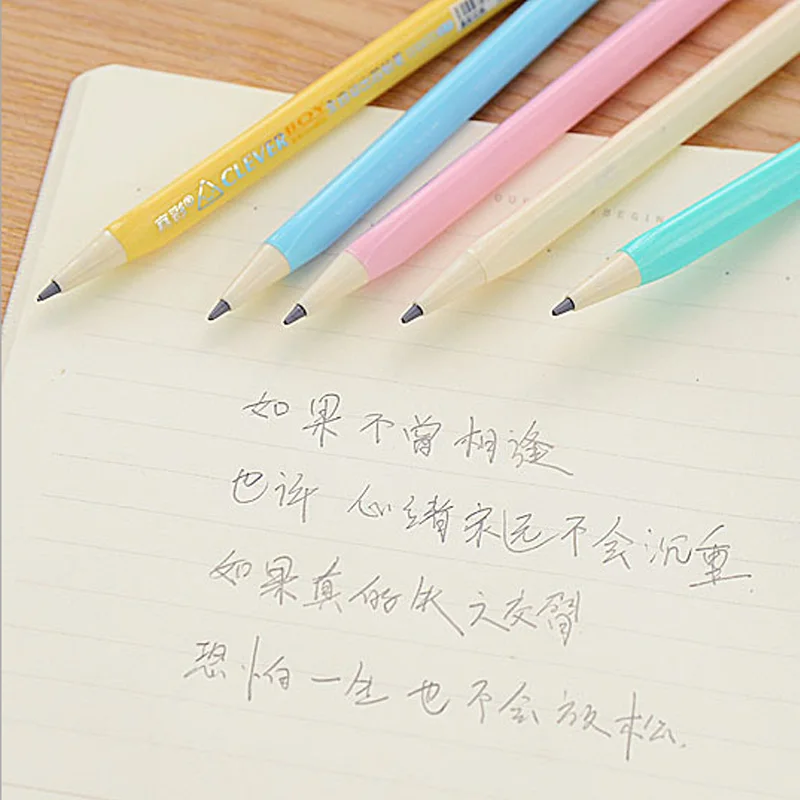 真彩® CLEVER BOY
BEGIN
如果不曾相逢
也许 心绪永远不会沉重
如果真的失之交臂
恐怕一生也不会放松.